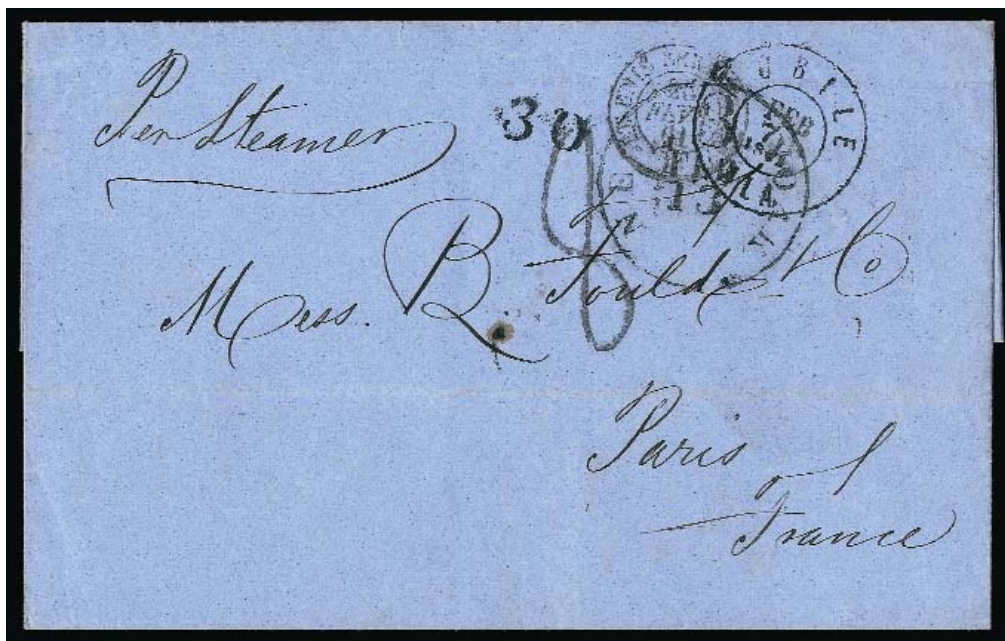 Per Steamer
30
MOBILE
FEB
ALA
8
Mess. B. Fould & Co
Paris
France